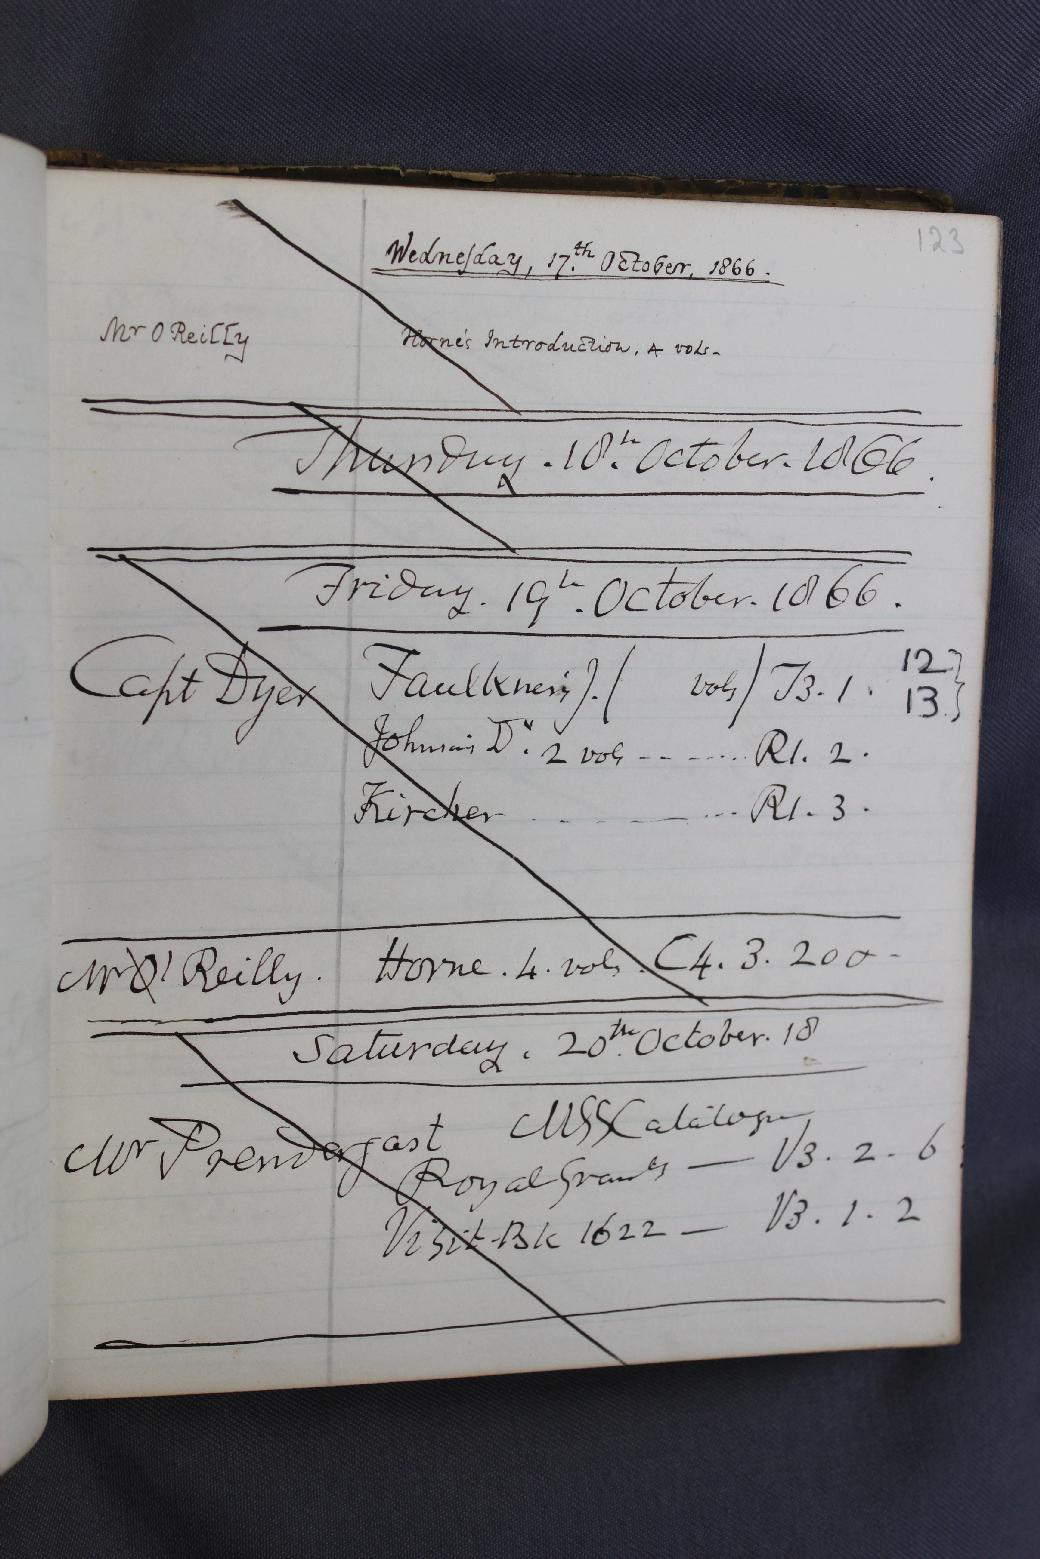 123
Wednesday, 17.th October, 1866.
Mr O Reilly Horne's Introduction, 4 vols.
Thursday. 18th. October. 1866.
Friday. 19th. October. 1866.
Capt Dyer Faulkner's J. ( vols) J3. 1. 12 }
13 }
Johnson's Dy. 2 vols ------- R1. 2.
Kircher ------- R1. 3.
Mr O'Reilly. Horne. 4. vols. C4. 3. 200-
Saturday. 20th. October. 18
Mr Prendergast MSS Catalogue
Royal Grants — V3. 2. 6
Visit. Bk 1622 — V3. 1. 2